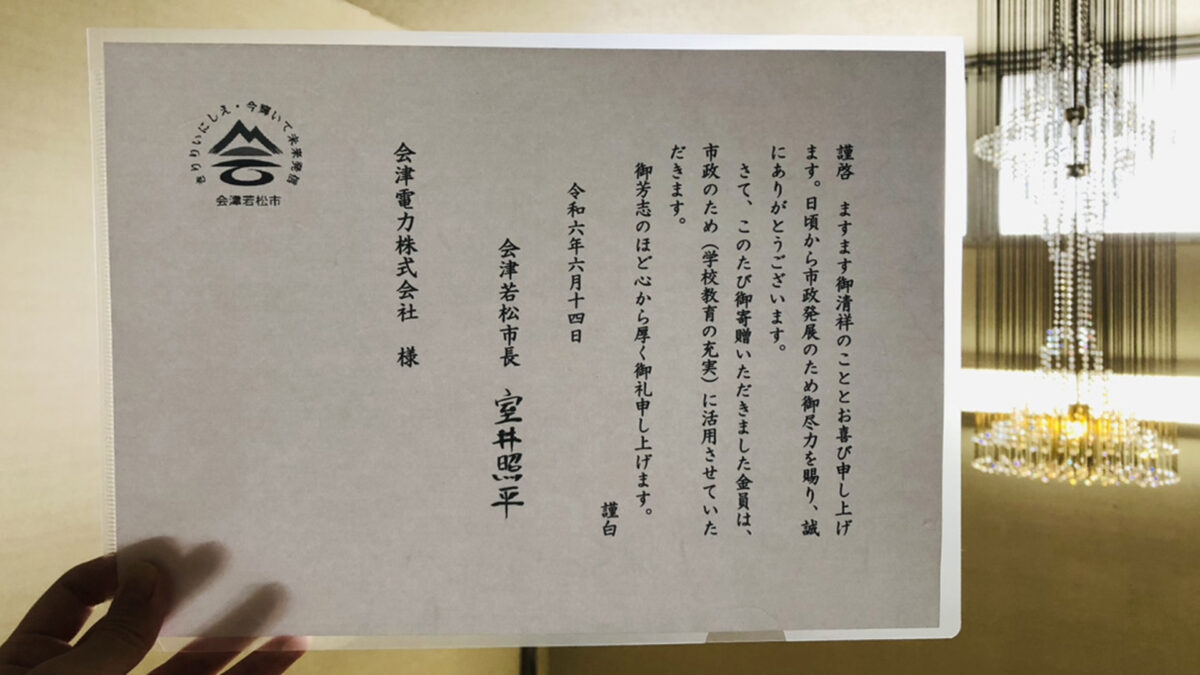 謹啓　ますます御清祥のこととお喜び申し上げ
ます。日頃から市政発展のため御尽力を賜り、誠
にありがとうございます。
さて、このたび御寄贈いただきました金員は、
市政のため（学校教育の充実）に活用させていた
だきます。
御芳志のほど心から厚く御礼申し上げます。
謹白
令和六年六月十四日
会津若松市長　室井照平
会津電力株式会社　様
きりりいにしえ・今輝いて未来発信
会津若松市